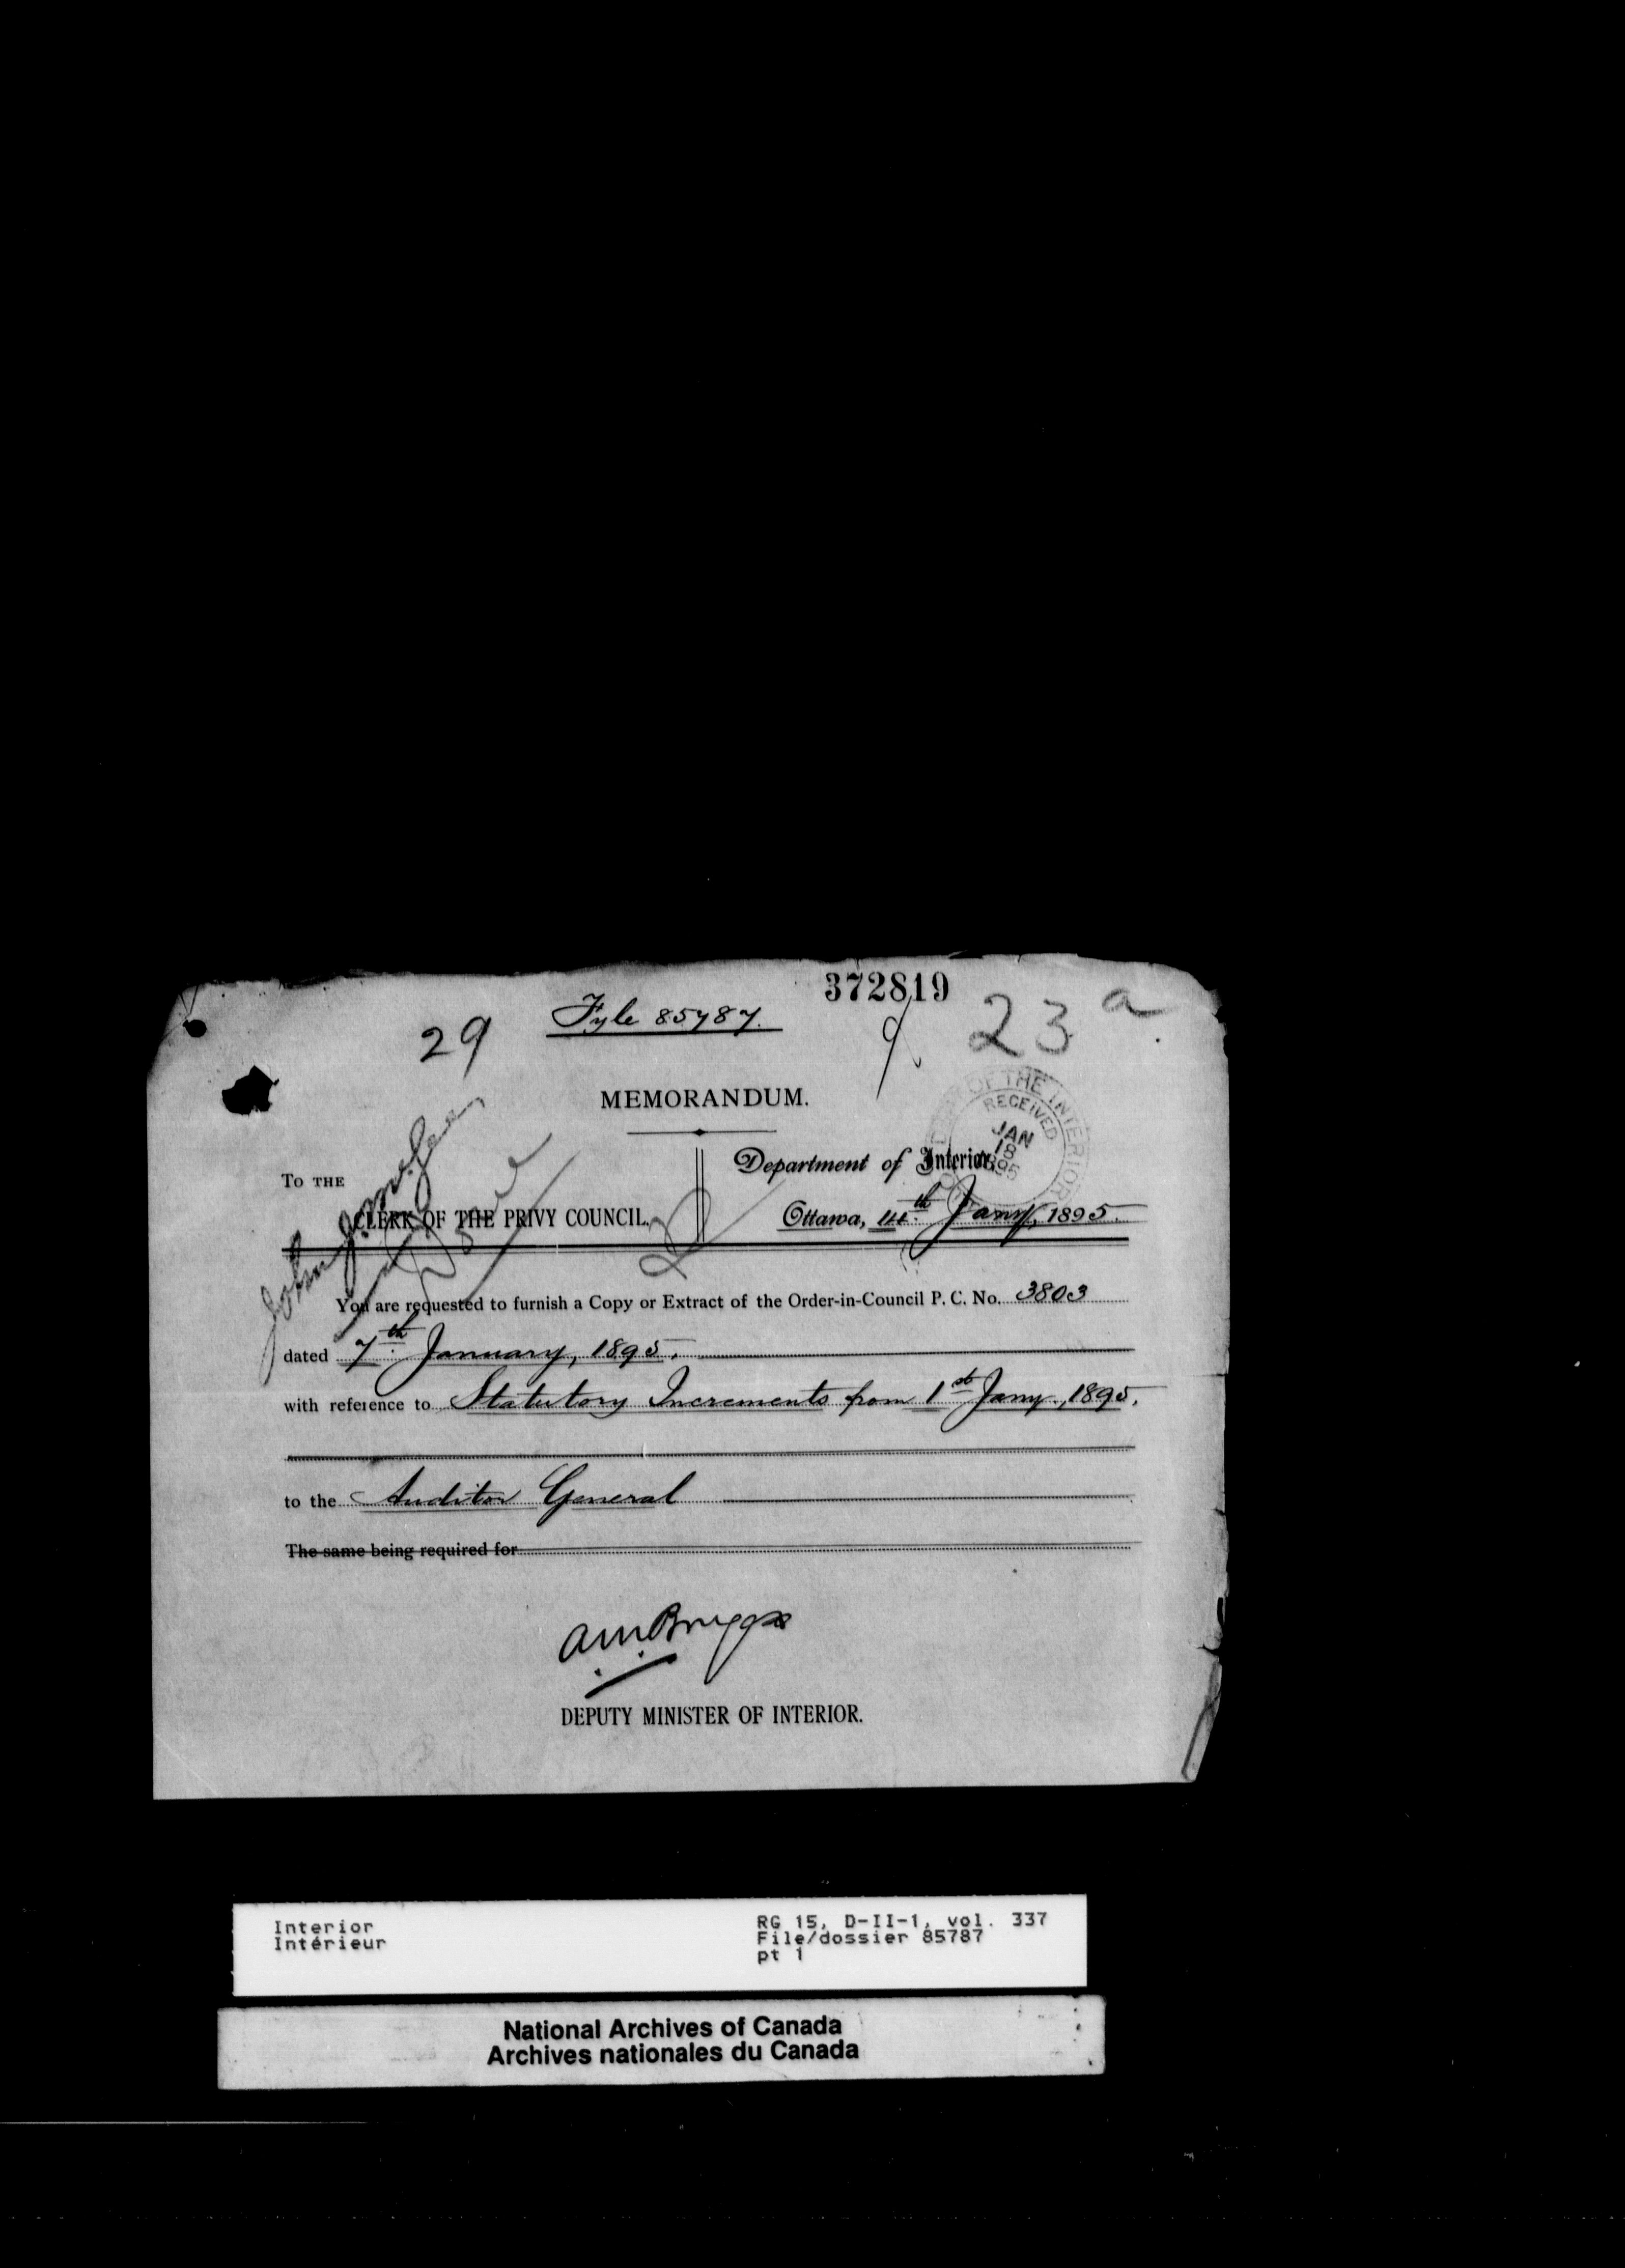 372819
Fyle 85787.
29
23 a
MEMORANDUM.
OF THE INTERIOR
RECEIVED
JAN
18
1895
Department of Interior
To THE
CLERK OF THE PRIVY COUNCIL.
Ottawa, 14th Jany, 1895.
You are requested to furnish a Copy or Extract of the Order-in-Council P. C. No. 3803
dated 7th January, 1895.
with reference to Statutory Increments from 1st Jany., 1895.
to the Auditor General
The same being required for
DEPUTY MINISTER OF INTERIOR.
Interior
Intérieur
RG 15, D-II-1, vol. 337
File/dossier 85787
pt 1
National Archives of Canada
Archives nationales du Canada